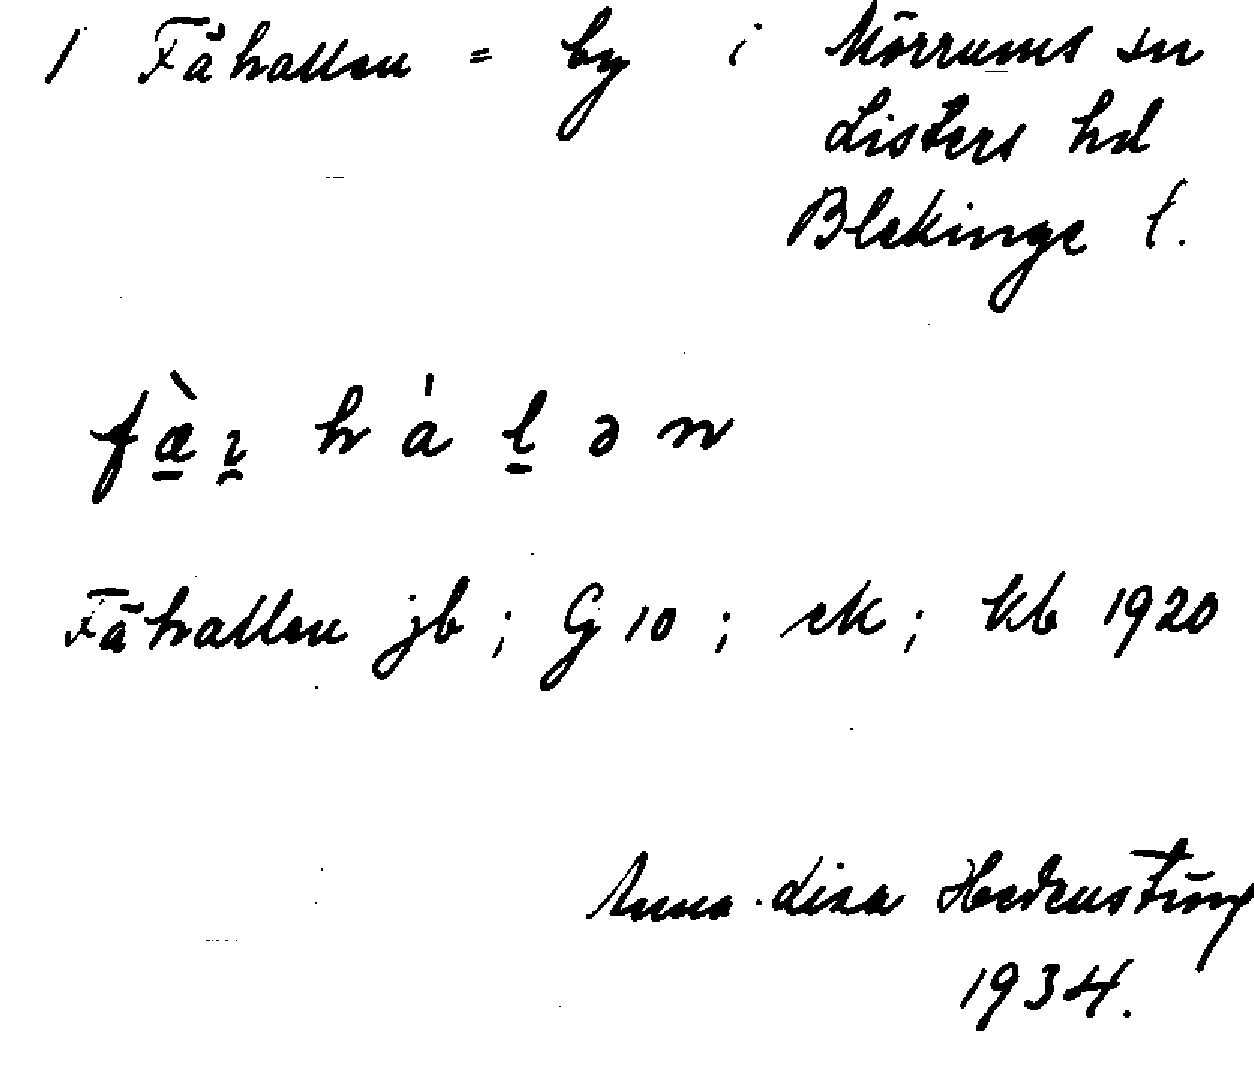 1 Fåhallen = by i Mörrums sn
Listers hd
Blekinge l.
fæ̀ı hálən
Fåhallen jb; Gj 10; ek; kb 1920
Anna-Lisa Hedenstierna
1934.